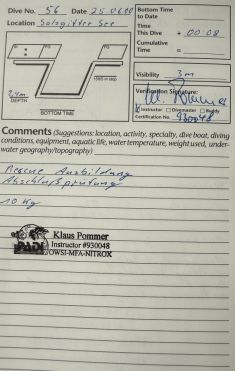 Dive No. 56 Date 25.06.00
Location Salzgitter See
Bottom Time
to Date
Time
This Dive + 00:08
Cumulative
Time =
PG
PG
DEPTH
BOTTOM TIME
Visibility 3m
Verification Signature:
Instructor Divemaster Buddy
Certification No. 930048
Comments (Suggestions: location, activity, specialty, dive boat, diving
conditions, equipment, aquatic life, water temperature, weight used, under-
water geography/topography)
Rescue Ausbildung
Abschlußprüfung
10 kg
PADI
Klaus Pommer
Instructor #930048
OWSI-MFA-NITROX